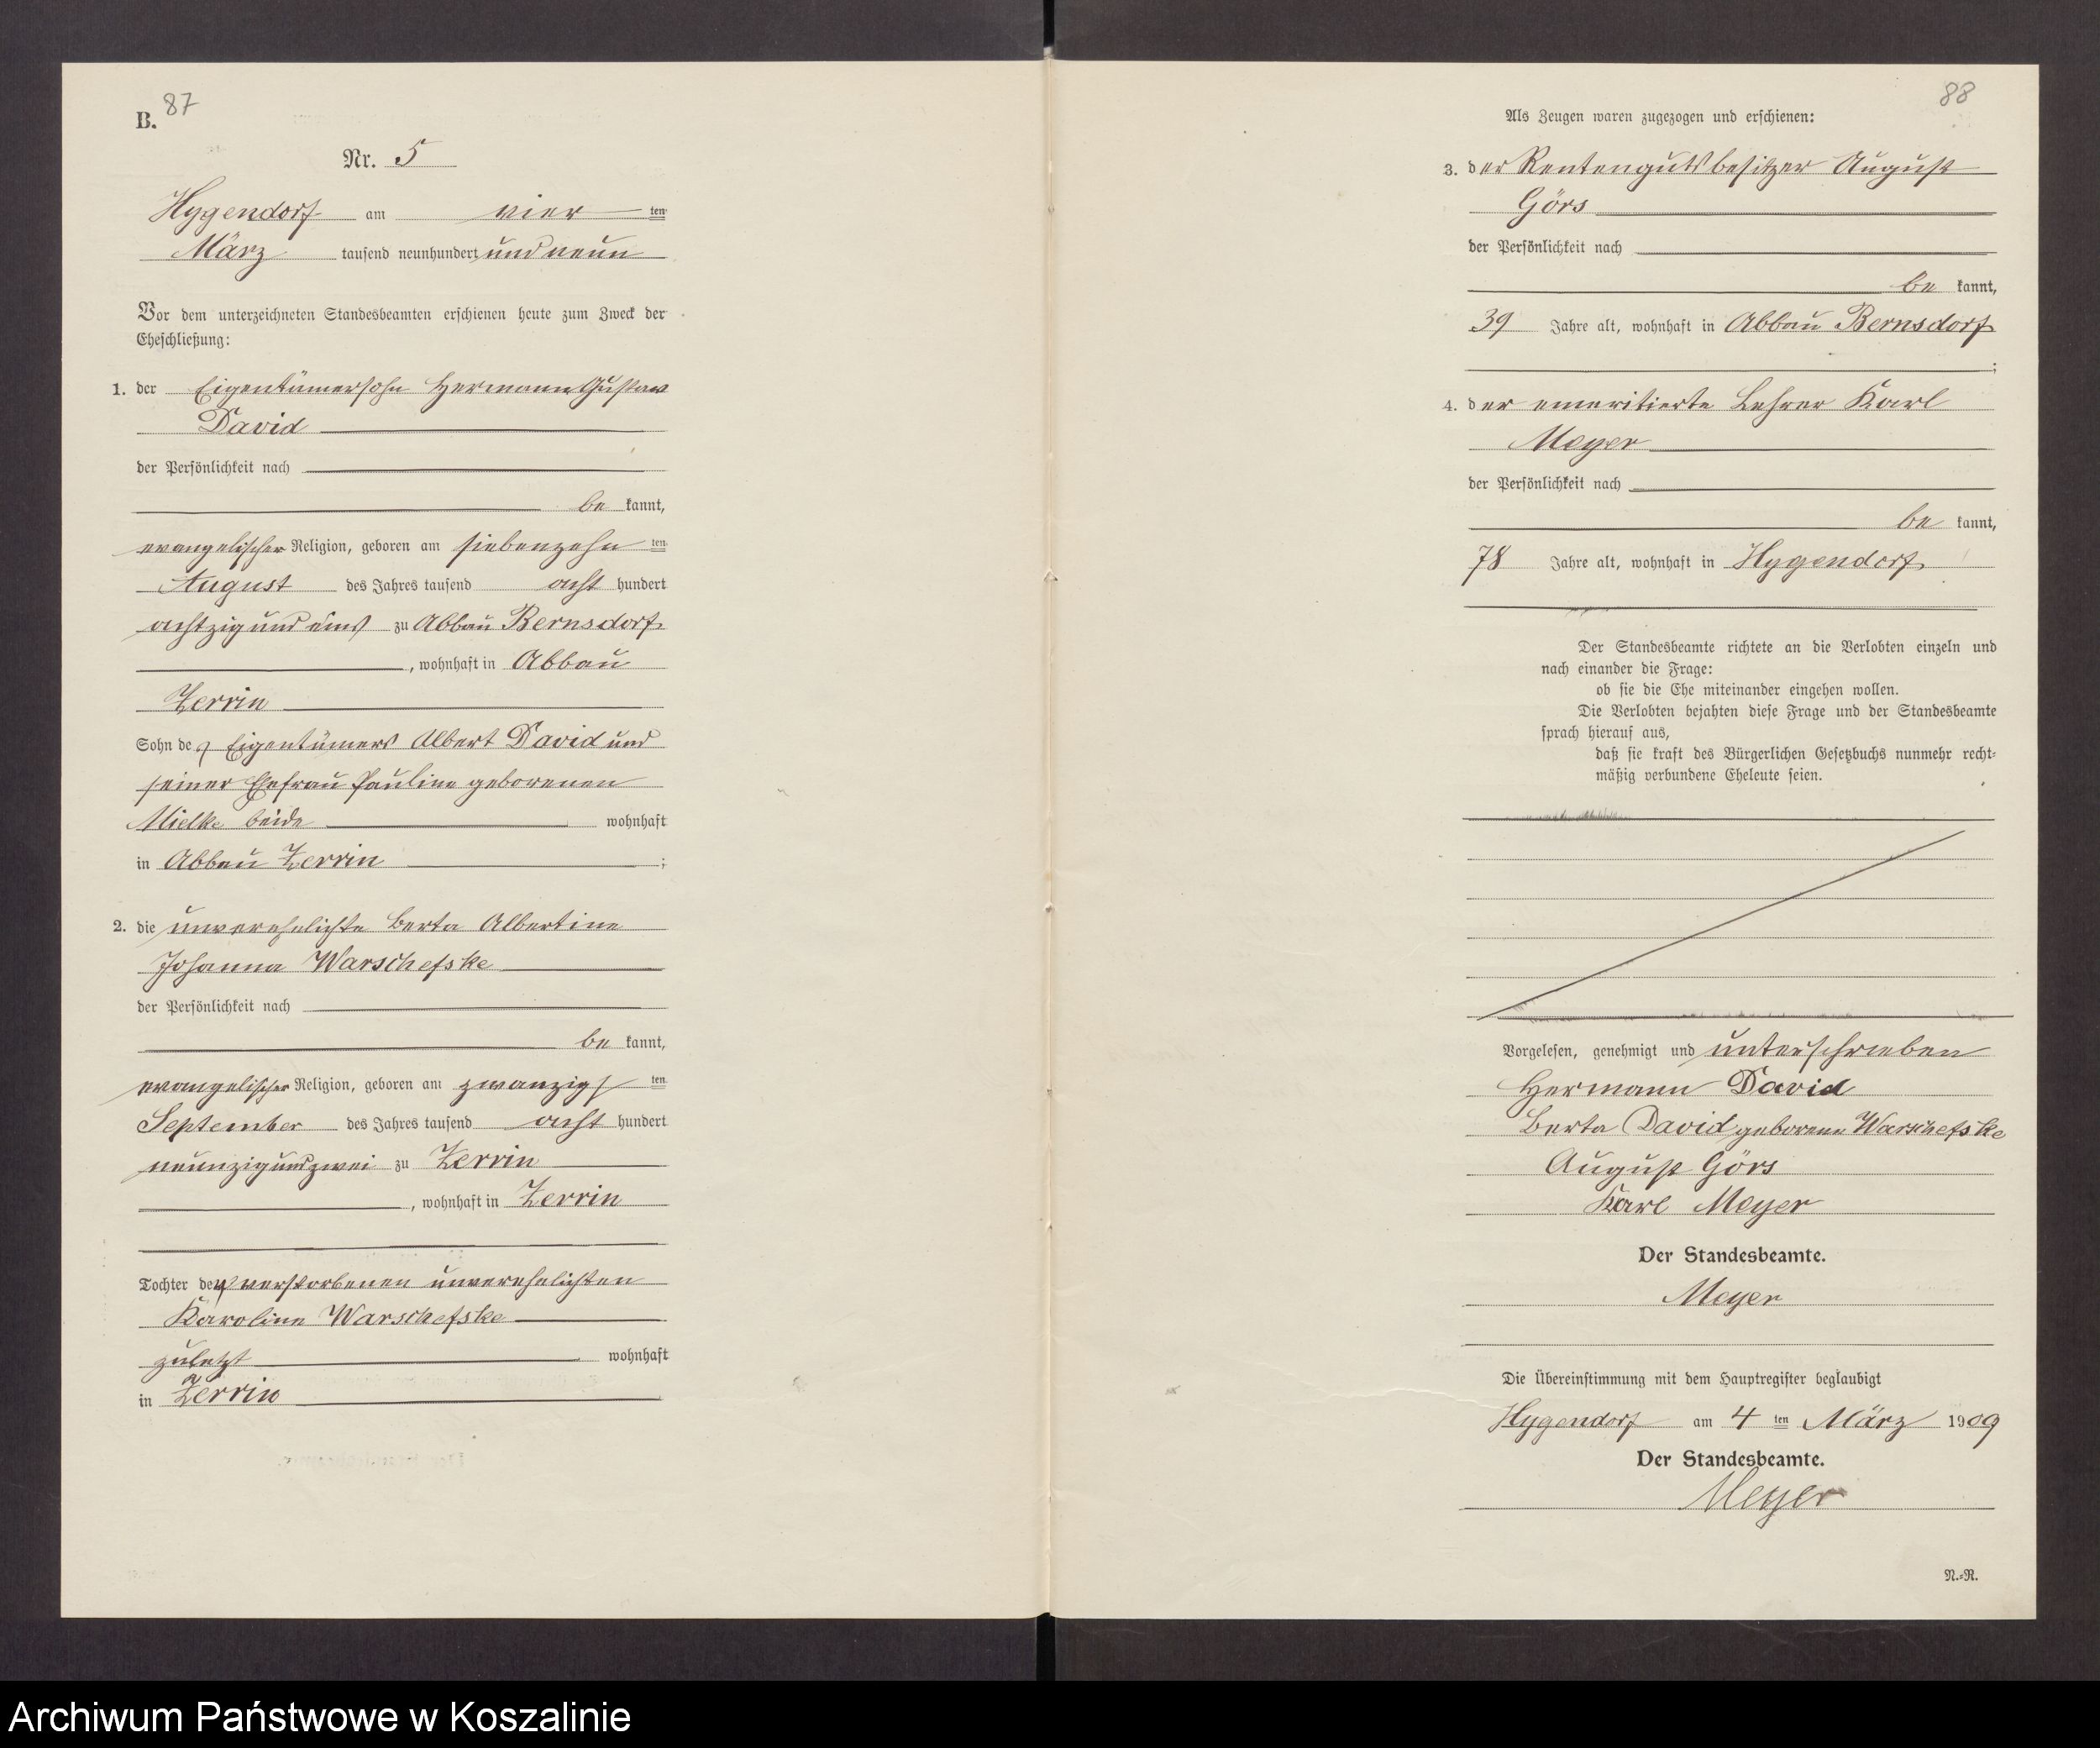 87
B.
Nr. 5
Hygendorf am vier ten
März tausend neunhundert und neun
Vor dem unterzeichneten Standesbeamten erschienen heute zum Zweck der
Eheschließung:
1. der Eigentümersohn Hermann Gustav
David
der Persönlichkeit nach
be kannt,
evangelischer Religion, geboren am siebenzehn ten
August des Jahres tausend acht hundert
achtzig und eins zu Abbau Bernsdorf
, wohnhaft in Abbau
Zerrin
Sohn des Eigentümers Albert David und
seiner Ehefrau Pauline geborenen
Mielke beide wohnhaft
in Abbau Zerrin ;
2. die unverehelichte Berta Albertine
Johanna Warschefske
der Persönlichkeit nach
be kannt,
evangelischer Religion, geboren am zwanzigs ten
September des Jahres tausend acht hundert
neunzig und zwei zu Zerrin
, wohnhaft in Zerrin
Tochter der verstorbenen unverehelichten
Karoline Warschefske
zuletzt wohnhaft
in Zerrin
88
Als Zeugen waren zugezogen und erschienen:
3. der Rentengutsbesitzer August
Görs
der Persönlichkeit nach
be kannt,
39 Jahre alt, wohnhaft in Abbau Bernsdorf
;
4. der emeritierte Lehrer Karl
Meyer
der Persönlichkeit nach
be kannt,
78 Jahre alt, wohnhaft in Hygendorf
Der Standesbeamte richtete an die Verlobten einzeln und
nach einander die Frage:
ob sie die Ehe miteinander eingehen wollen.
Die Verlobten bejahten diese Frage und der Standesbeamte
sprach hierauf aus,
daß sie kraft des Bürgerlichen Gesetzbuchs nunmehr recht-
mäßig verbundene Eheleute seien.
Vorgelesen, genehmigt und unterschrieben
Hermann David
Berta David geborene Warschefske
August Görs
Karl Meyer
Der Standesbeamte.
Meyer
Die Übereinstimmung mit dem Hauptregister beglaubigt
Hygendorf am 4 ten März 1909
Der Standesbeamte.
Meyer
N.-R.
Archiwum Państwowe w Koszalinie